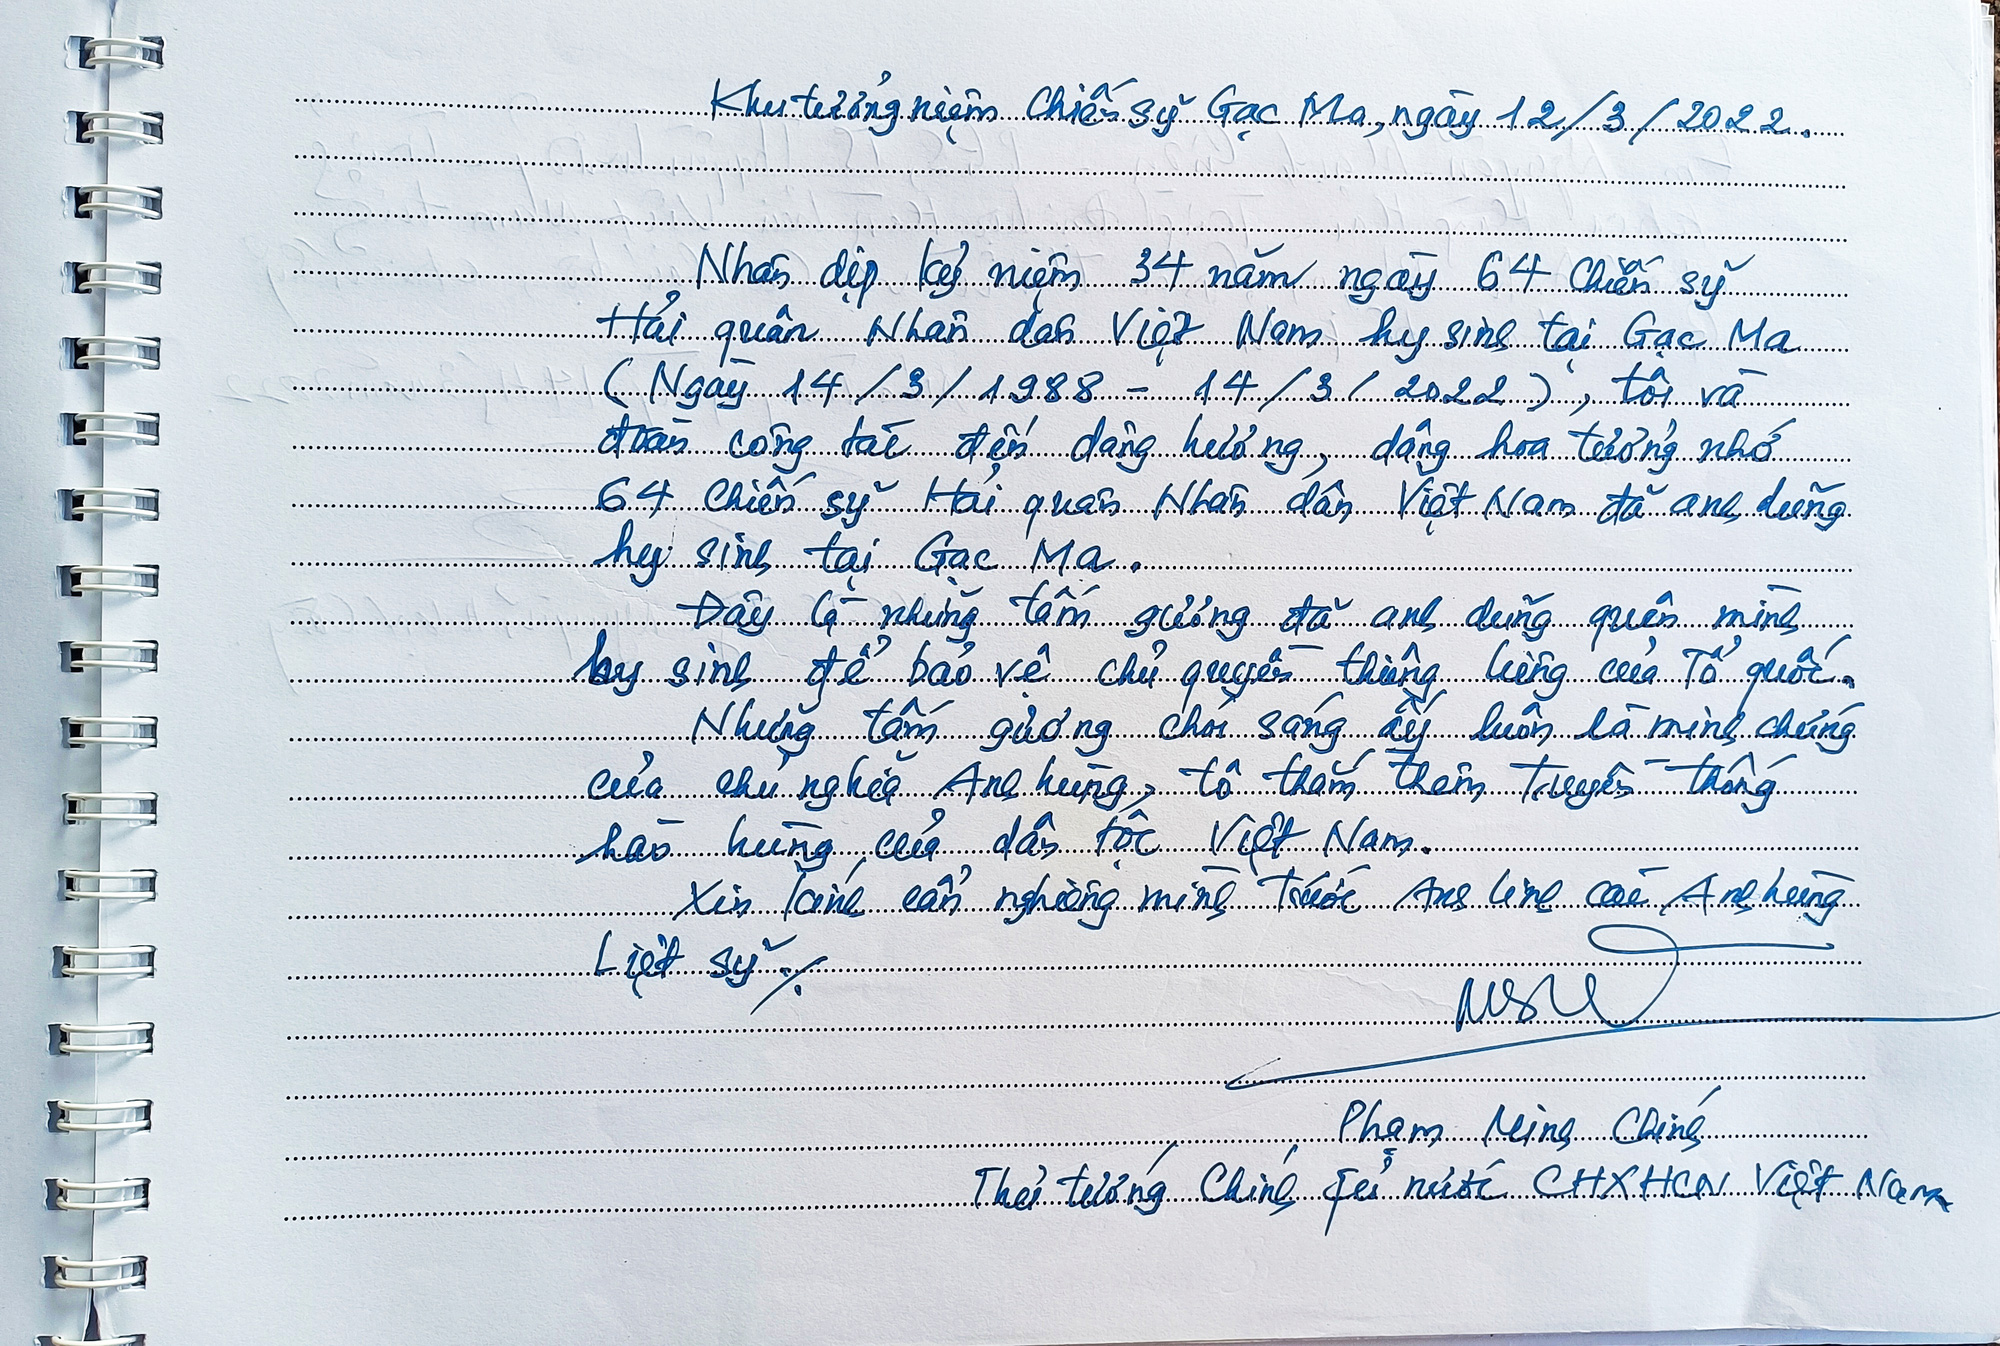 Khu tưởng niệm chiến sỹ Gạc Ma, ngày 12/3/2022.
Nhân dịp kỷ niệm 34 năm ngày 64 chiến sỹ
Hải quân Nhân dân Việt Nam hy sinh tại Gạc Ma
(Ngày 14/3/1988 - 14/3/2022), tôi và
đoàn công tác đến dâng hương, dâng hoa tưởng nhớ
64 chiến sỹ Hải quân Nhân dân Việt Nam đã anh dũng
hy sinh tại Gạc Ma.
Đây là những tấm gương đã anh dũng quên mình
hy sinh để bảo vệ chủ quyền thiêng liêng của Tổ quốc.
Những tấm gương chói sáng ấy luôn là minh chứng
của chủ nghĩa Anh hùng, tô thắm thêm truyền thống
hào hùng của dân tộc Việt Nam.
Xin kính cẩn nghiêng mình trước Anh linh các Anh hùng
Liệt sỹ./.
Phạm Minh Chính
Thủ tướng Chính phủ nước CHXHCN Việt Nam